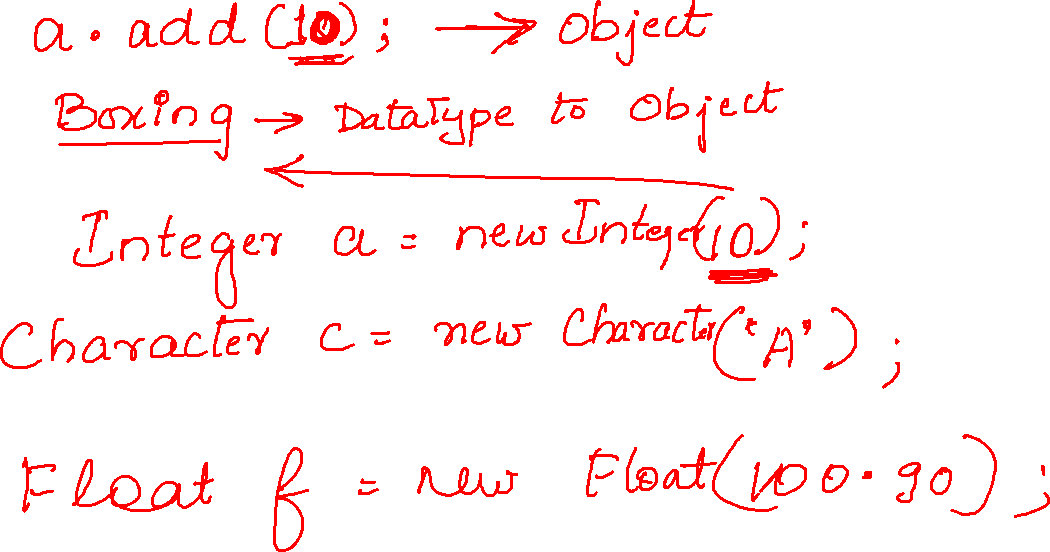 a. add (10); → Object
Boxing → DataType to Object
Integer a = new Integer(10);
Character c = new Character('A');
Float f = new Float(100.90);